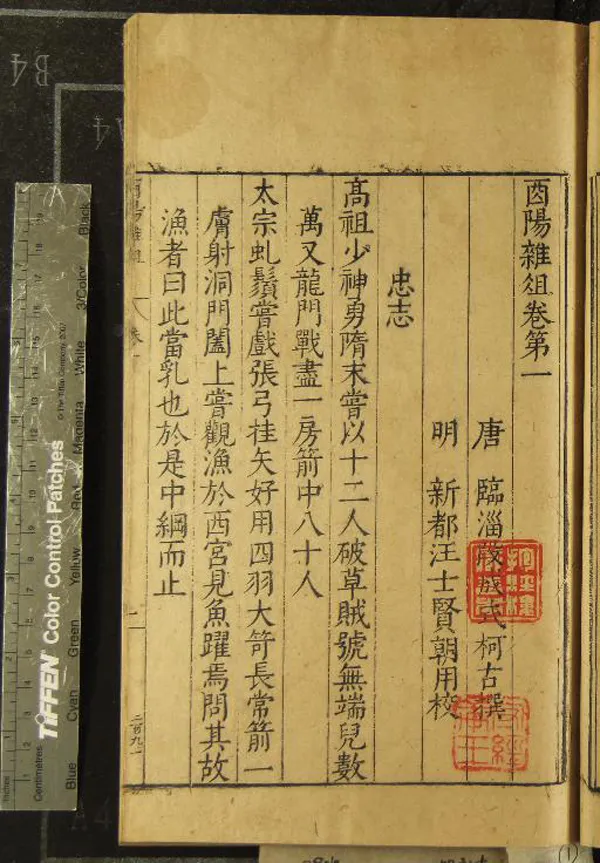 酉陽雜俎卷第一
唐 臨淄段成式柯古撰
明 新都汪士賢朝用校
忠志
高祖少神勇隋末嘗以十二人破草賊號無端兒數
萬又龍門戰盡一房箭中八十人
太宗虬鬚嘗戲張弓挂矢好用四羽大笴長常箭一
膚射洞門闔上嘗觀漁於西宮見魚躍焉問其故
漁者曰此當乳也於是中網而止
卷一
二百九二
B4
A4
A4
TIFFEN Color Control Patches
© The Tiffen Company, 2007
Centimetres
Inches
Blue
Cyan
Green
Yellow
Red
Magenta
White
3/Color
Black